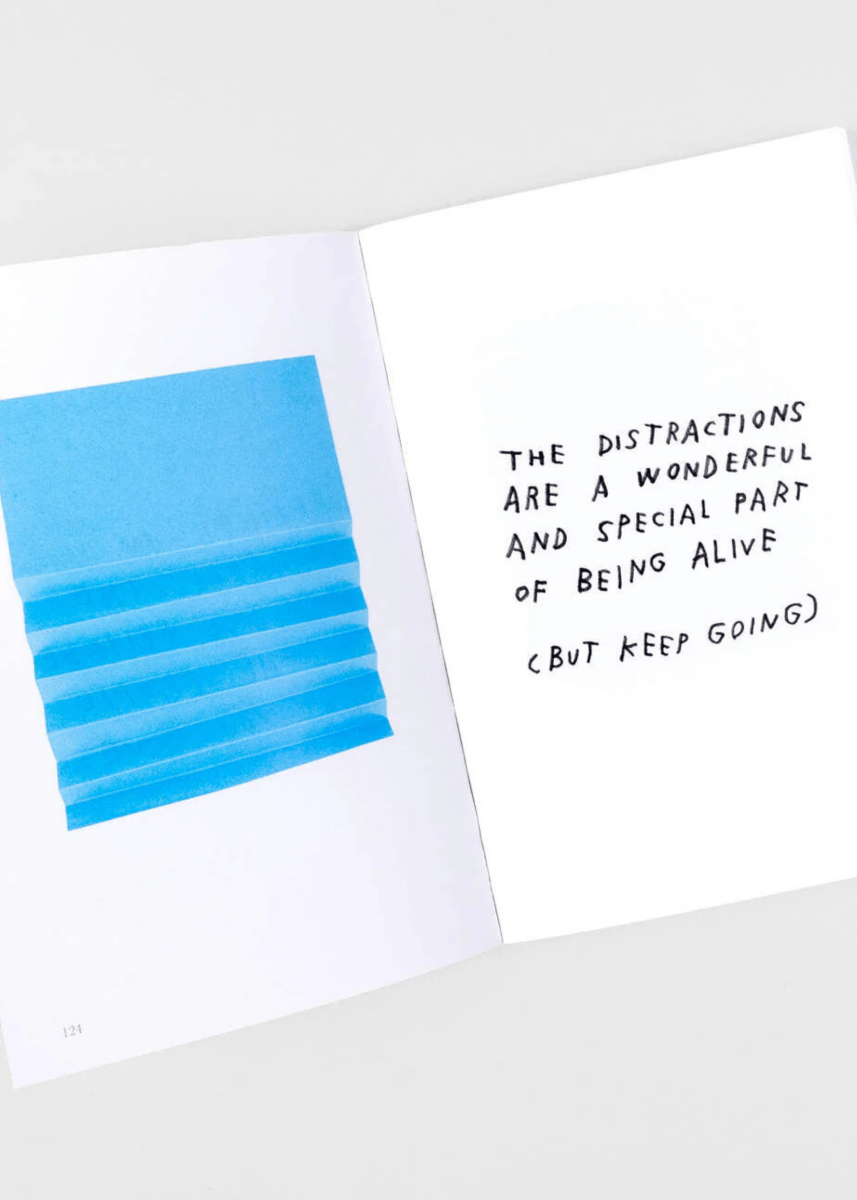 124
THE DISTRACTIONS
ARE A WONDERFUL
AND SPECIAL PART
OF BEING ALIVE
(BUT KEEP GOING)